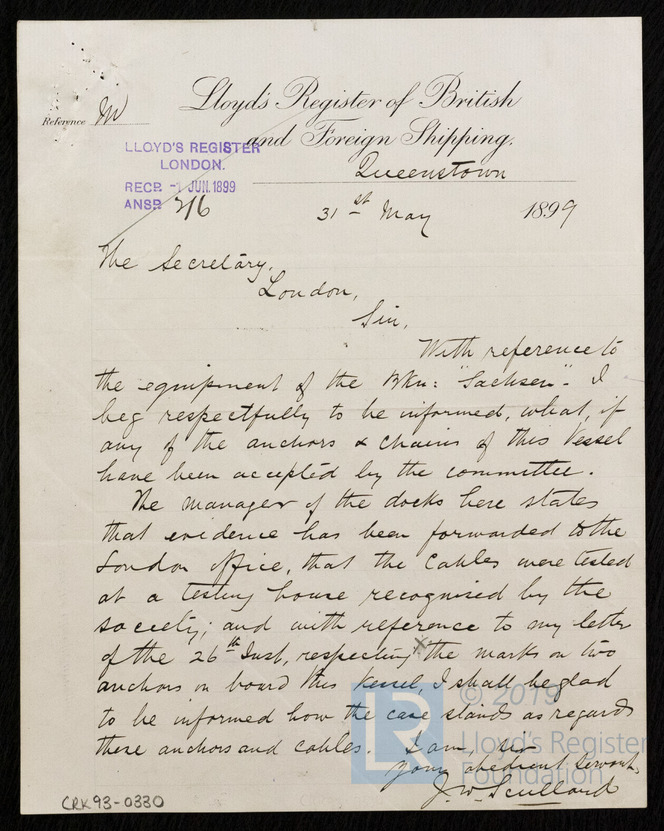 Lloyd's Register of British
and Foreign Shipping.
Reference
LLOYD'S REGISTER
LONDON.
RECD -1 JUN. 1899
ANSD 2/6
Queenstown
31st May 1899
The Secretary,
London,
Sir,
With reference to
the equipment of the Bkn: "Sachsen". I
beg respectfully to be informed, what, if
any of the anchors & chains of this Vessel
have been accepted by the committee.
The manager of the docks here states
that evidence has been forwarded to the
London office, that the cables were tested
at a testing house recognised by the
society; and with reference to my letter
of the 26th Inst, respecting the marks on two
anchors on board this vessel, I shall be glad
to be informed how the case stands as regards
these anchors and cables. I am, sir
your obedient Servant,
J. W. Scullard
CRK93-0330
LR
© 2019
Lloyd's Register
Foundation